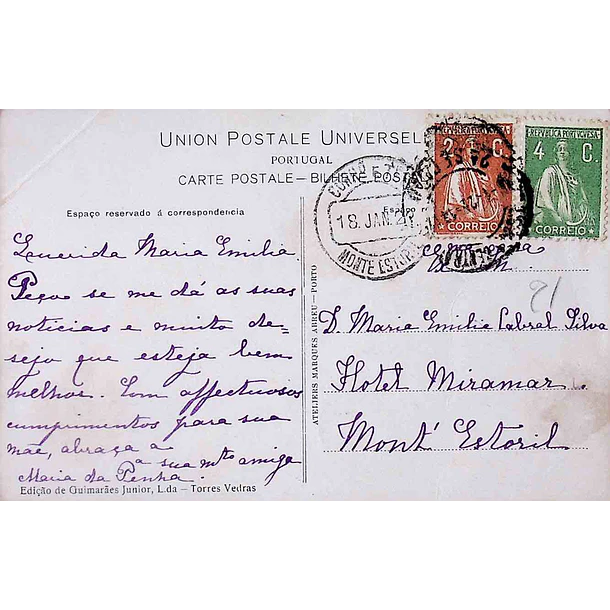 UNION POSTALE UNIVERSEL
PORTUGAL
CARTE POSTALE — BILHETE POST
Espaço reservado á correspondencia
Querida Maria Emilia.
Peço se me dá as suas
noticias e muito de=
sejo que esteja bem
melhor. Com affectuosos
cumprimentos para sua
mãe, abraça-a
a sua mto amiga
Maria da Penha.
Edição de Guimarães Junior, L.da — Torres Vedras
ATELIERS MARQUES ABREU — PORTO
REPUBLICA PORTUGUESA
2 C.
CORREIO
REPUBLICA PORTUGUESA
4 C.
CORREIO
18 JAN 2
MONTE ESTORIL
21
D. Maria Emilia Cabral Silva
Hotel Miramar.
Mont' Estoril